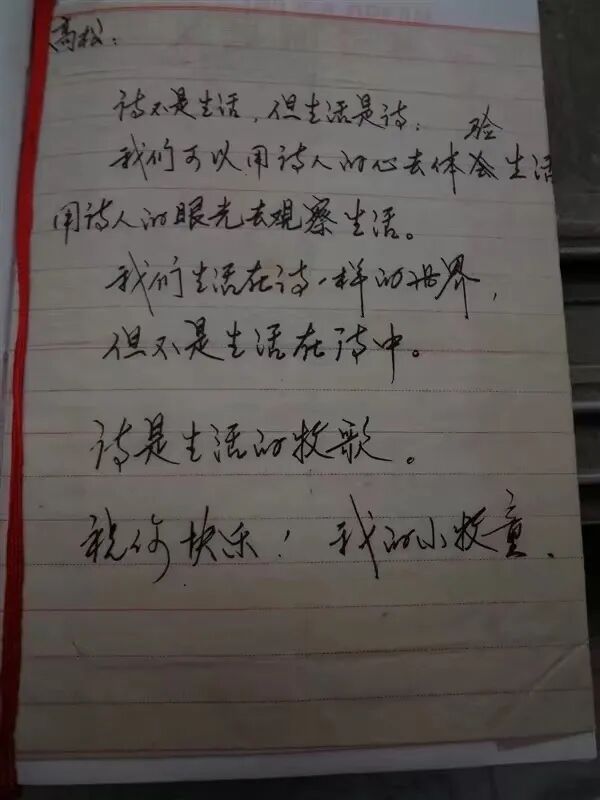 高松：
诗不是生活，但生活是诗；
我们可以用诗人的心去体验生活
用诗人的眼光去观察生活。
我们生活在诗一样的世界，
但不是生活在诗中。
诗是生活的牧歌。
祝你快乐！我的小牧童．